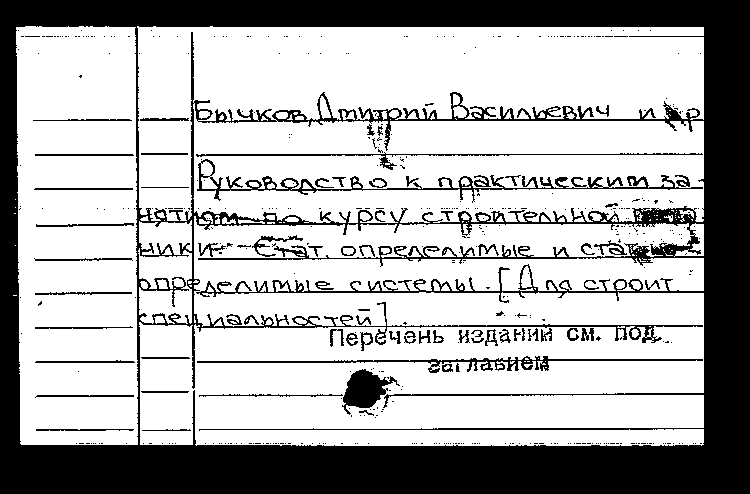 Бычков, Дмитрий Васильевич и др
Руководство к практическим за-
нятиям по курсу строительной
ники. Стат. определимые и стат.
определимые системы. [Для строит.
специальностей].
Перечень изданий см. под
заглавием